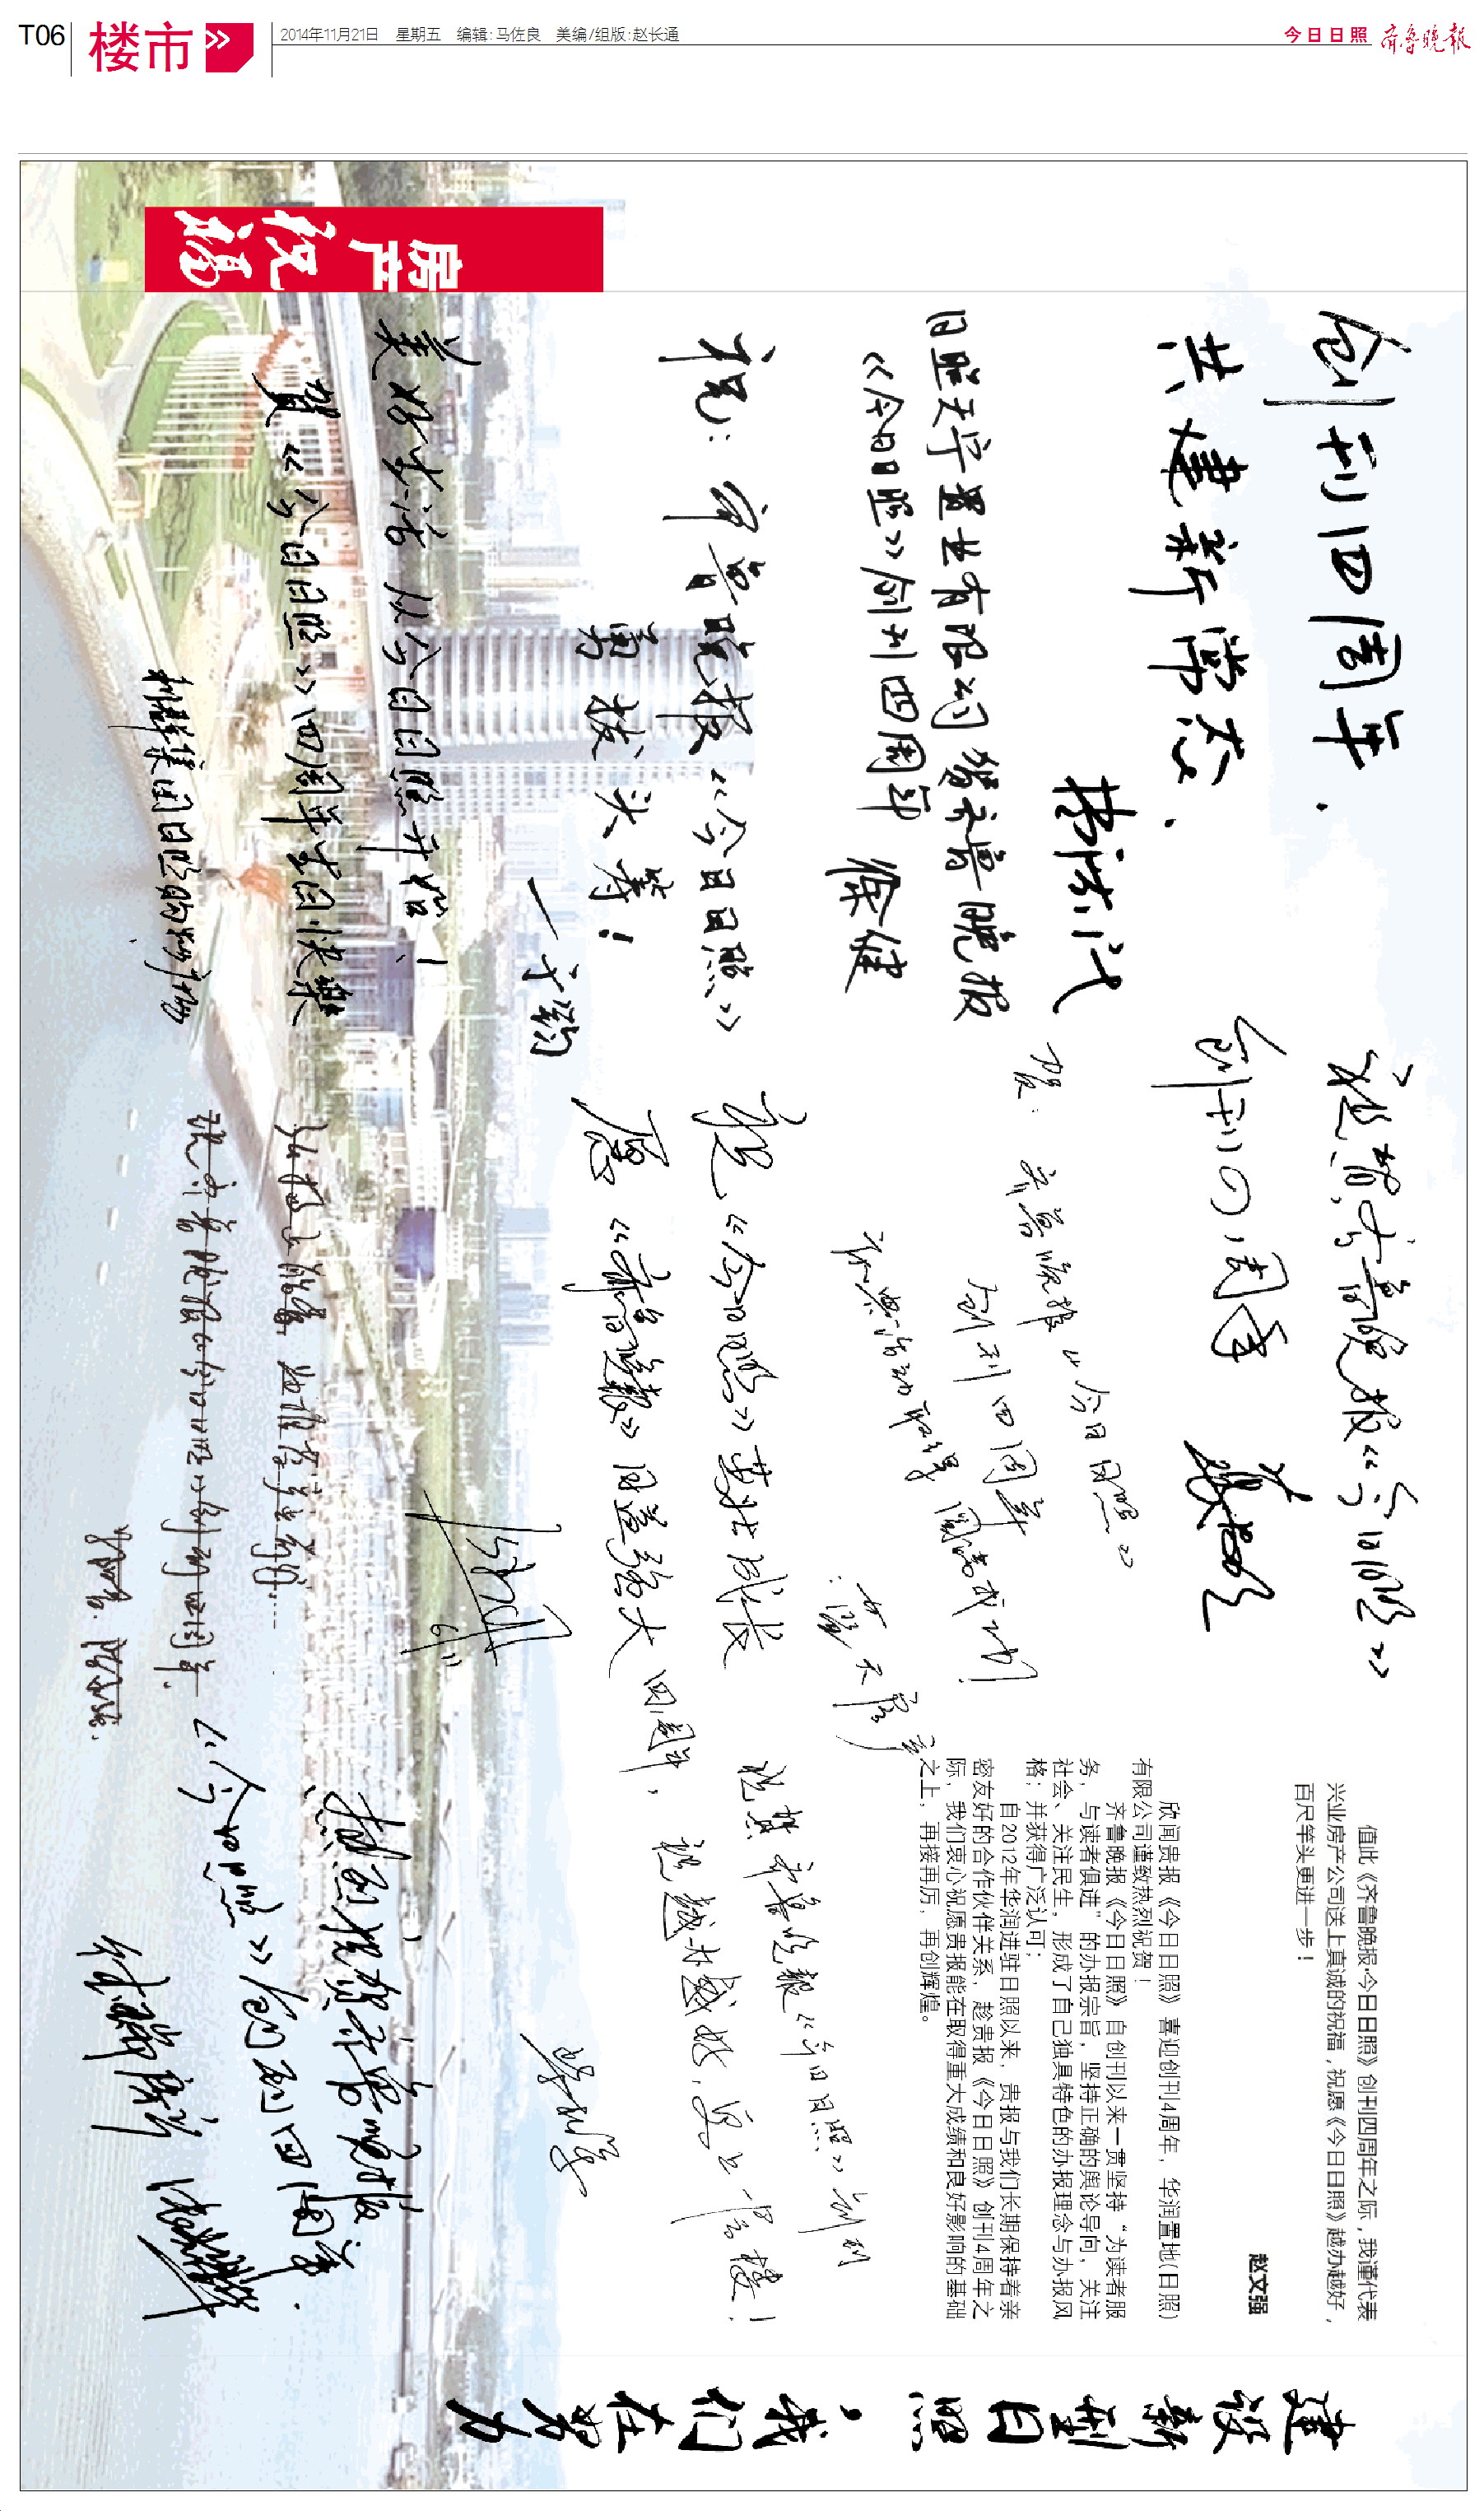 T06 楼市
2014年11月21日 星期五 编辑:马佐良 美编/组版:赵长通
今日日照 齐鲁晚报
房产祝福
创刊四周年.
共建新常态.
日照天宇置业有限公司贺齐鲁晚报
《今日日照》创刊四周年
祝:齐鲁晚报《今日日照》
勇拔头筹!
美好生活 从今日日照开始!
贺《今日日照》四周年生日快乐
祝贺齐鲁晚报《今日日照》
创刊四周年
贺:
齐鲁晚报《今日日照》
创刊四周年
庆典活动取得圆满成功!
祝《今日日照》茁壮成长
愿《齐鲁晚报》日益强大
祝贺齐鲁晚报《今日日照》创刊
四周年,祝越办越好,更上一层楼!
热烈祝贺齐鲁晚报
《今日日照》创刊四周年.
值此《齐鲁晚报·今日日照》创刊四周年之际,我谨代表
兴业房产公司送上真诚的祝福,祝愿《今日日照》越办越好,
百尺竿头更进一步!
赵文强
欣闻贵报《今日日照》喜迎创刊4周年,华润置地(日照)
有限公司谨致热烈祝贺!
齐鲁晚报《今日日照》自创刊以来一贯坚持“为读者服
务,与读者俱进”的办报宗旨,坚持正确的舆论导向,关注
社会、关注民生,形成了自己独具特色的办报理念与办报风
格;并获得广泛认可;
自2012年华润进驻日照以来,贵报与我们长期保持着亲
密友好的合作伙伴关系,趁贵报《今日日照》创刊4周年之
际,我们衷心祝愿贵报能在取得重大成绩和良好影响的基础
之上,再接再厉,再创辉煌。
建设新型日照,我们在努力